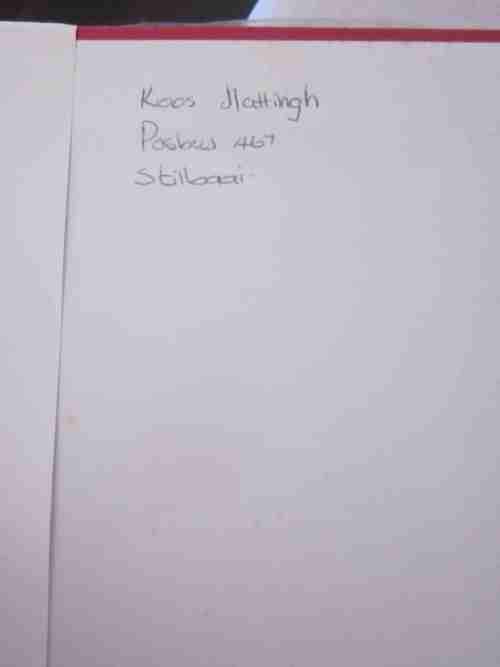 Koos Hattingh
Posbus 467
Stilbaai.